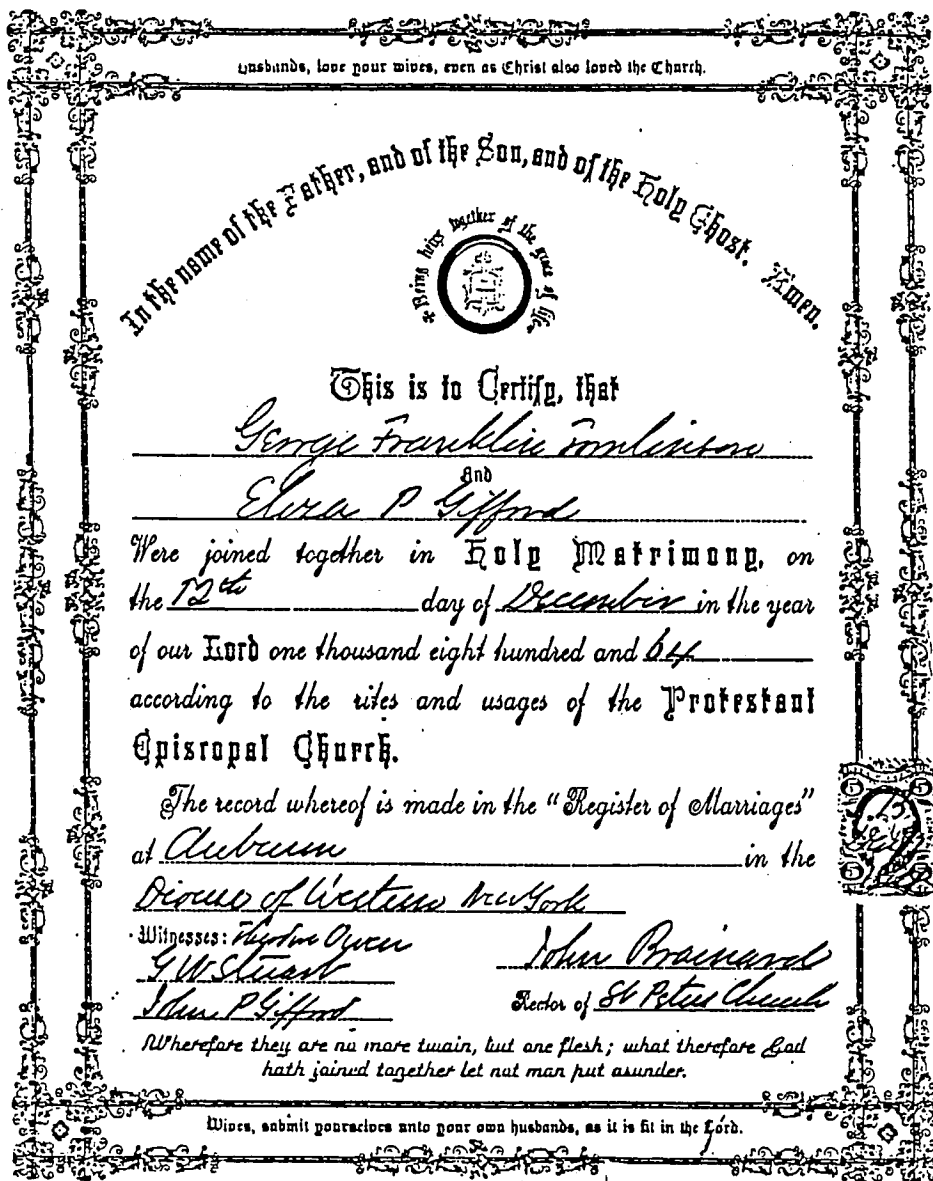 Husbands, love your wives, even as Christ also loved the Church.
In the name of the Father, and of the Son, and of the Holy Ghost. Amen.
Being heirs together of the grace of life
This is to Certify, that
George Franklin Tomlinson
And
P Gifford
Were joined together in Holy Matrimony, on
the 12th day of December in the year
of our Lord one thousand eight hundred and 64
according to the rites and usages of the Protestant
Episcopal Church.
The record whereof is made in the "Register of Marriages"
at Auburn in the
Diocese of Western New York
Witnesses: Theodore Owen
G W Stuart
John P Gifford
John Brainard
Rector of St Peters Church
Wherefore they are no more twain, but one flesh; what therefore God
hath joined together let not man put asunder.
Wives, submit yourselves unto your own husbands, as it is fit in the Lord.